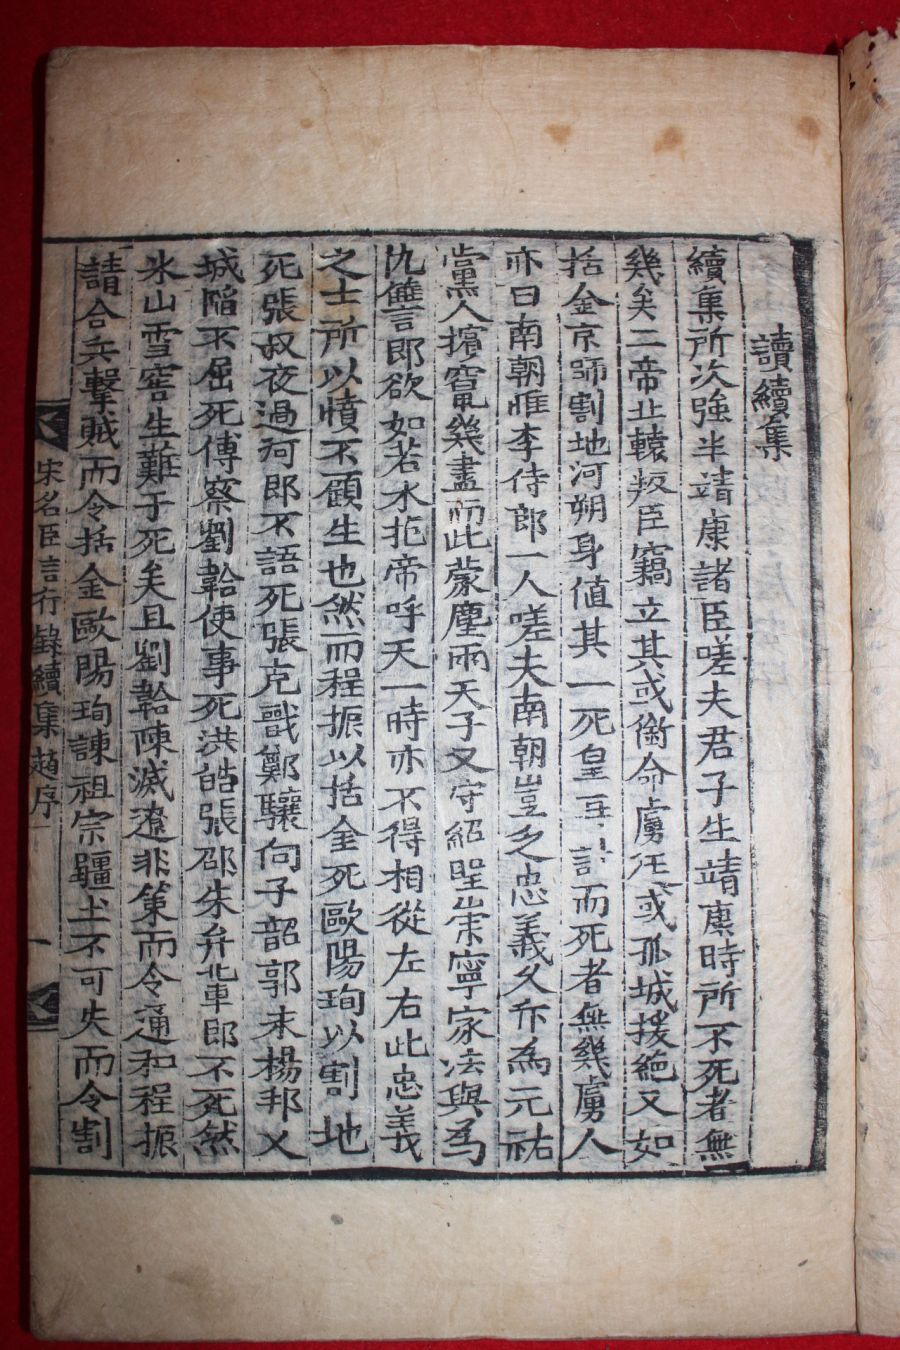 讀續集
續集所次強半靖康諸臣嗟夫君子生靖康時所不死者無
幾矣二帝北轅叛臣竊立其或銜命虜汪或孤城援絕又如
括金京師割地河朔身值其一死皇計而死者無幾虜人
亦曰南朝惟李侍郎一人嗟夫南朝豈乏忠義久矣為元祐
黨人擯竄幾盡而此蒙塵兩天子又守紹聖崇寧家法與為
仇讎言郎欲如若水抱帝呼天一時亦不得相從左右此忠義
之士所以憤不顧生也然而程振以括金死歐陽珣以割地
死張叔夜過河郎不語死張克戩鄭驤向子韶郭未楊邦乂
城陷不屈死傅察劉韐使事死洪皓張邵朱弁北車郎不死然
氷山雪窖生難于死矣且劉韐陳滅遼非策而令通和程振
請合兵擊賊而令括金歐陽珣諫祖宗疆土不可失而令割
宋名臣言行錄續集趙序 一